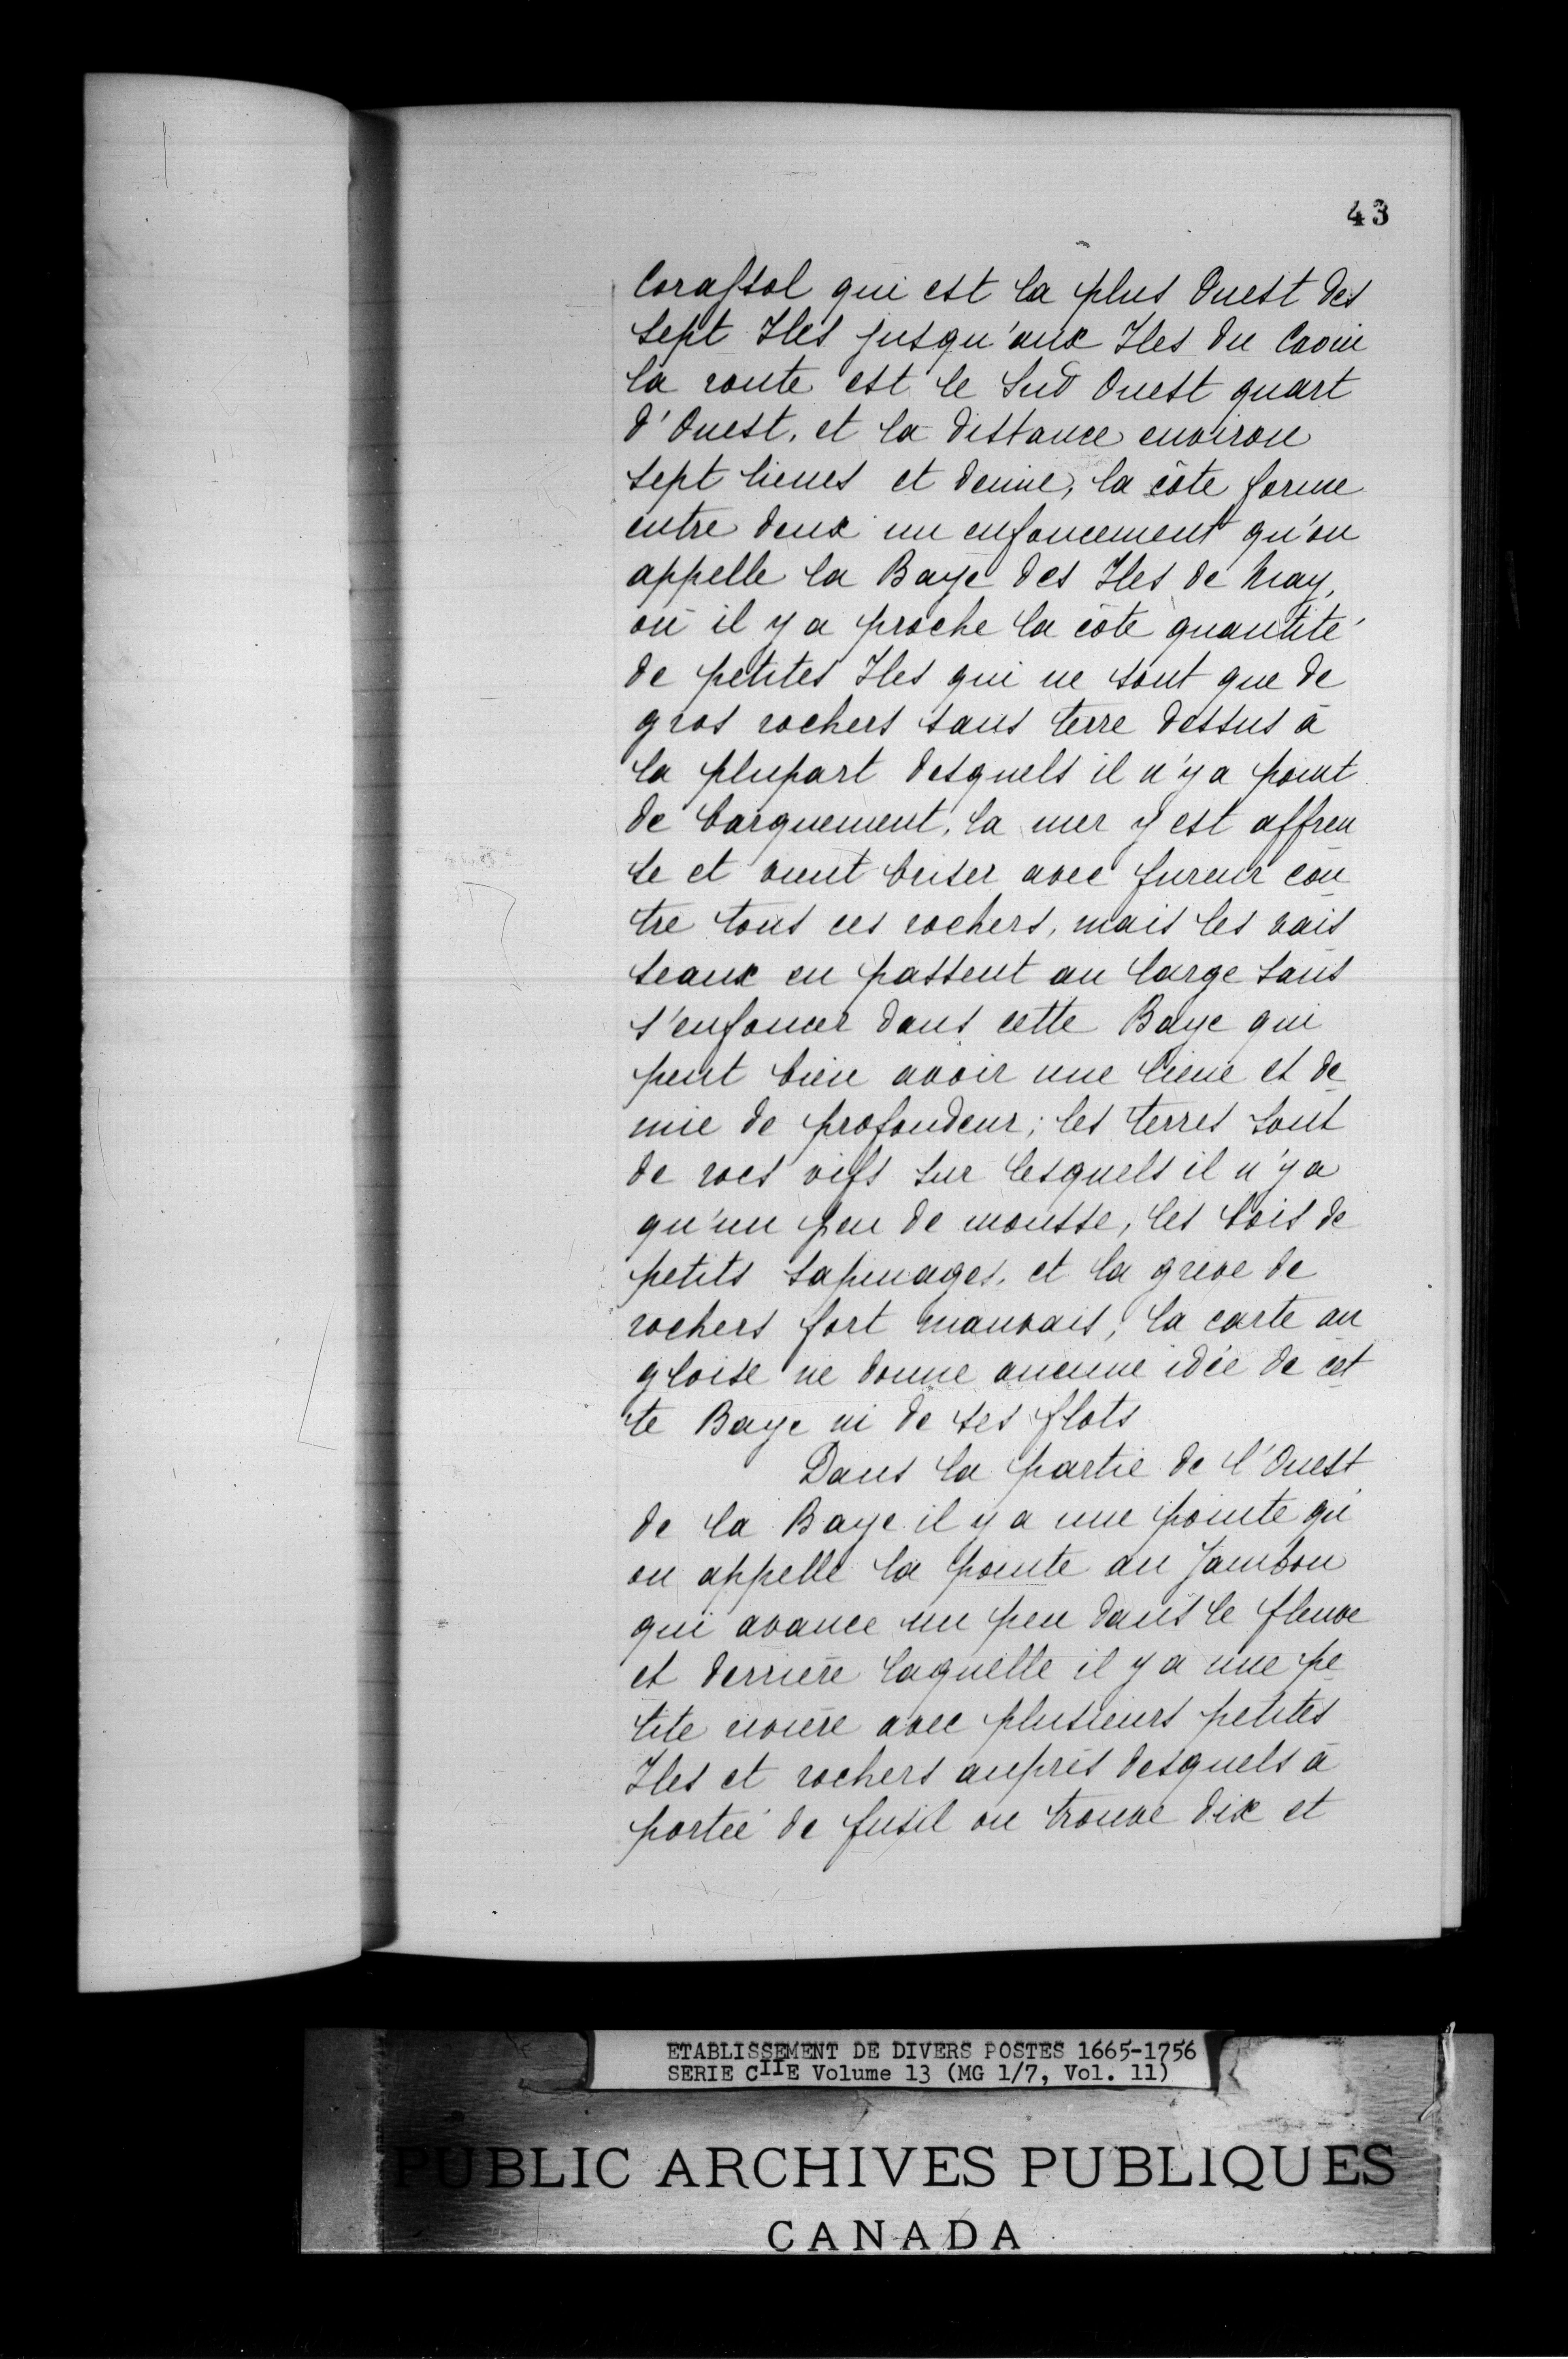 43
Corassol qui est la plus Ouest des
Sept Iles jusqu'aux Iles du Caoui
la route est le Sud Ouest quart
d'Ouest, et la distance environ
sept lieues et demie, la côte forme
entre deux un enfoncement qu'on
appelle la Baye des Iles de May,
où il y a proche la côte quantité
de petites Iles qui ne sont que de
gros rochers sans terre dessus à
la plupart desquels il n'y a point
de barquement, la mer y est affreu
se et vient briser avec fureur con
tre tous ces rochers, mais les vais
seaux en passent au large sans
s'enfoncer dans cette Baye qui
peut bien avoir une lieue et de
mie de profondeur; les terres sont
de rocs vifs sur lesquels il n'y a
qu'un peu de mousse, les bois de
petits sapinages, et la grève de
rochers fort mauvais; la carte an
gloise ne donne aucune idée de cet
te Baye ni de ses flots
Dans la partie de l'Ouest
de la Baye il y a une pointe qu'
on appelle la pointe au Jambon
qui avance un peu dans le fleuve
et derrière laquelle il y a une pe
tite rivière avec plusieurs petites
Iles et rochers auprès desquels à
portée de fusil on trouve dix et
ETABLISSEMENT DE DIVERS POSTES 1665-1756
SERIE CIIE Volume 13 (MG 1/7, Vol. 11)
PUBLIC ARCHIVES PUBLIQUES
CANADA